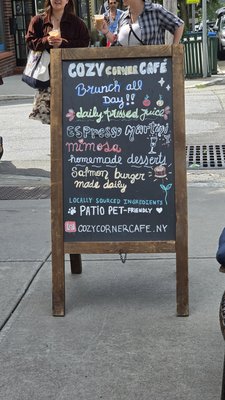 COZY CORNER CAFÉ
Brunch all
Day!!
daily pressed juice
Espresso martini
mimosa
homemade desserts
Salmon burger
made daily
LOCALLY SOURCED INGREDIENTS
PATIO PET-FRIENDLY
COZYCORNERCAFE.NY